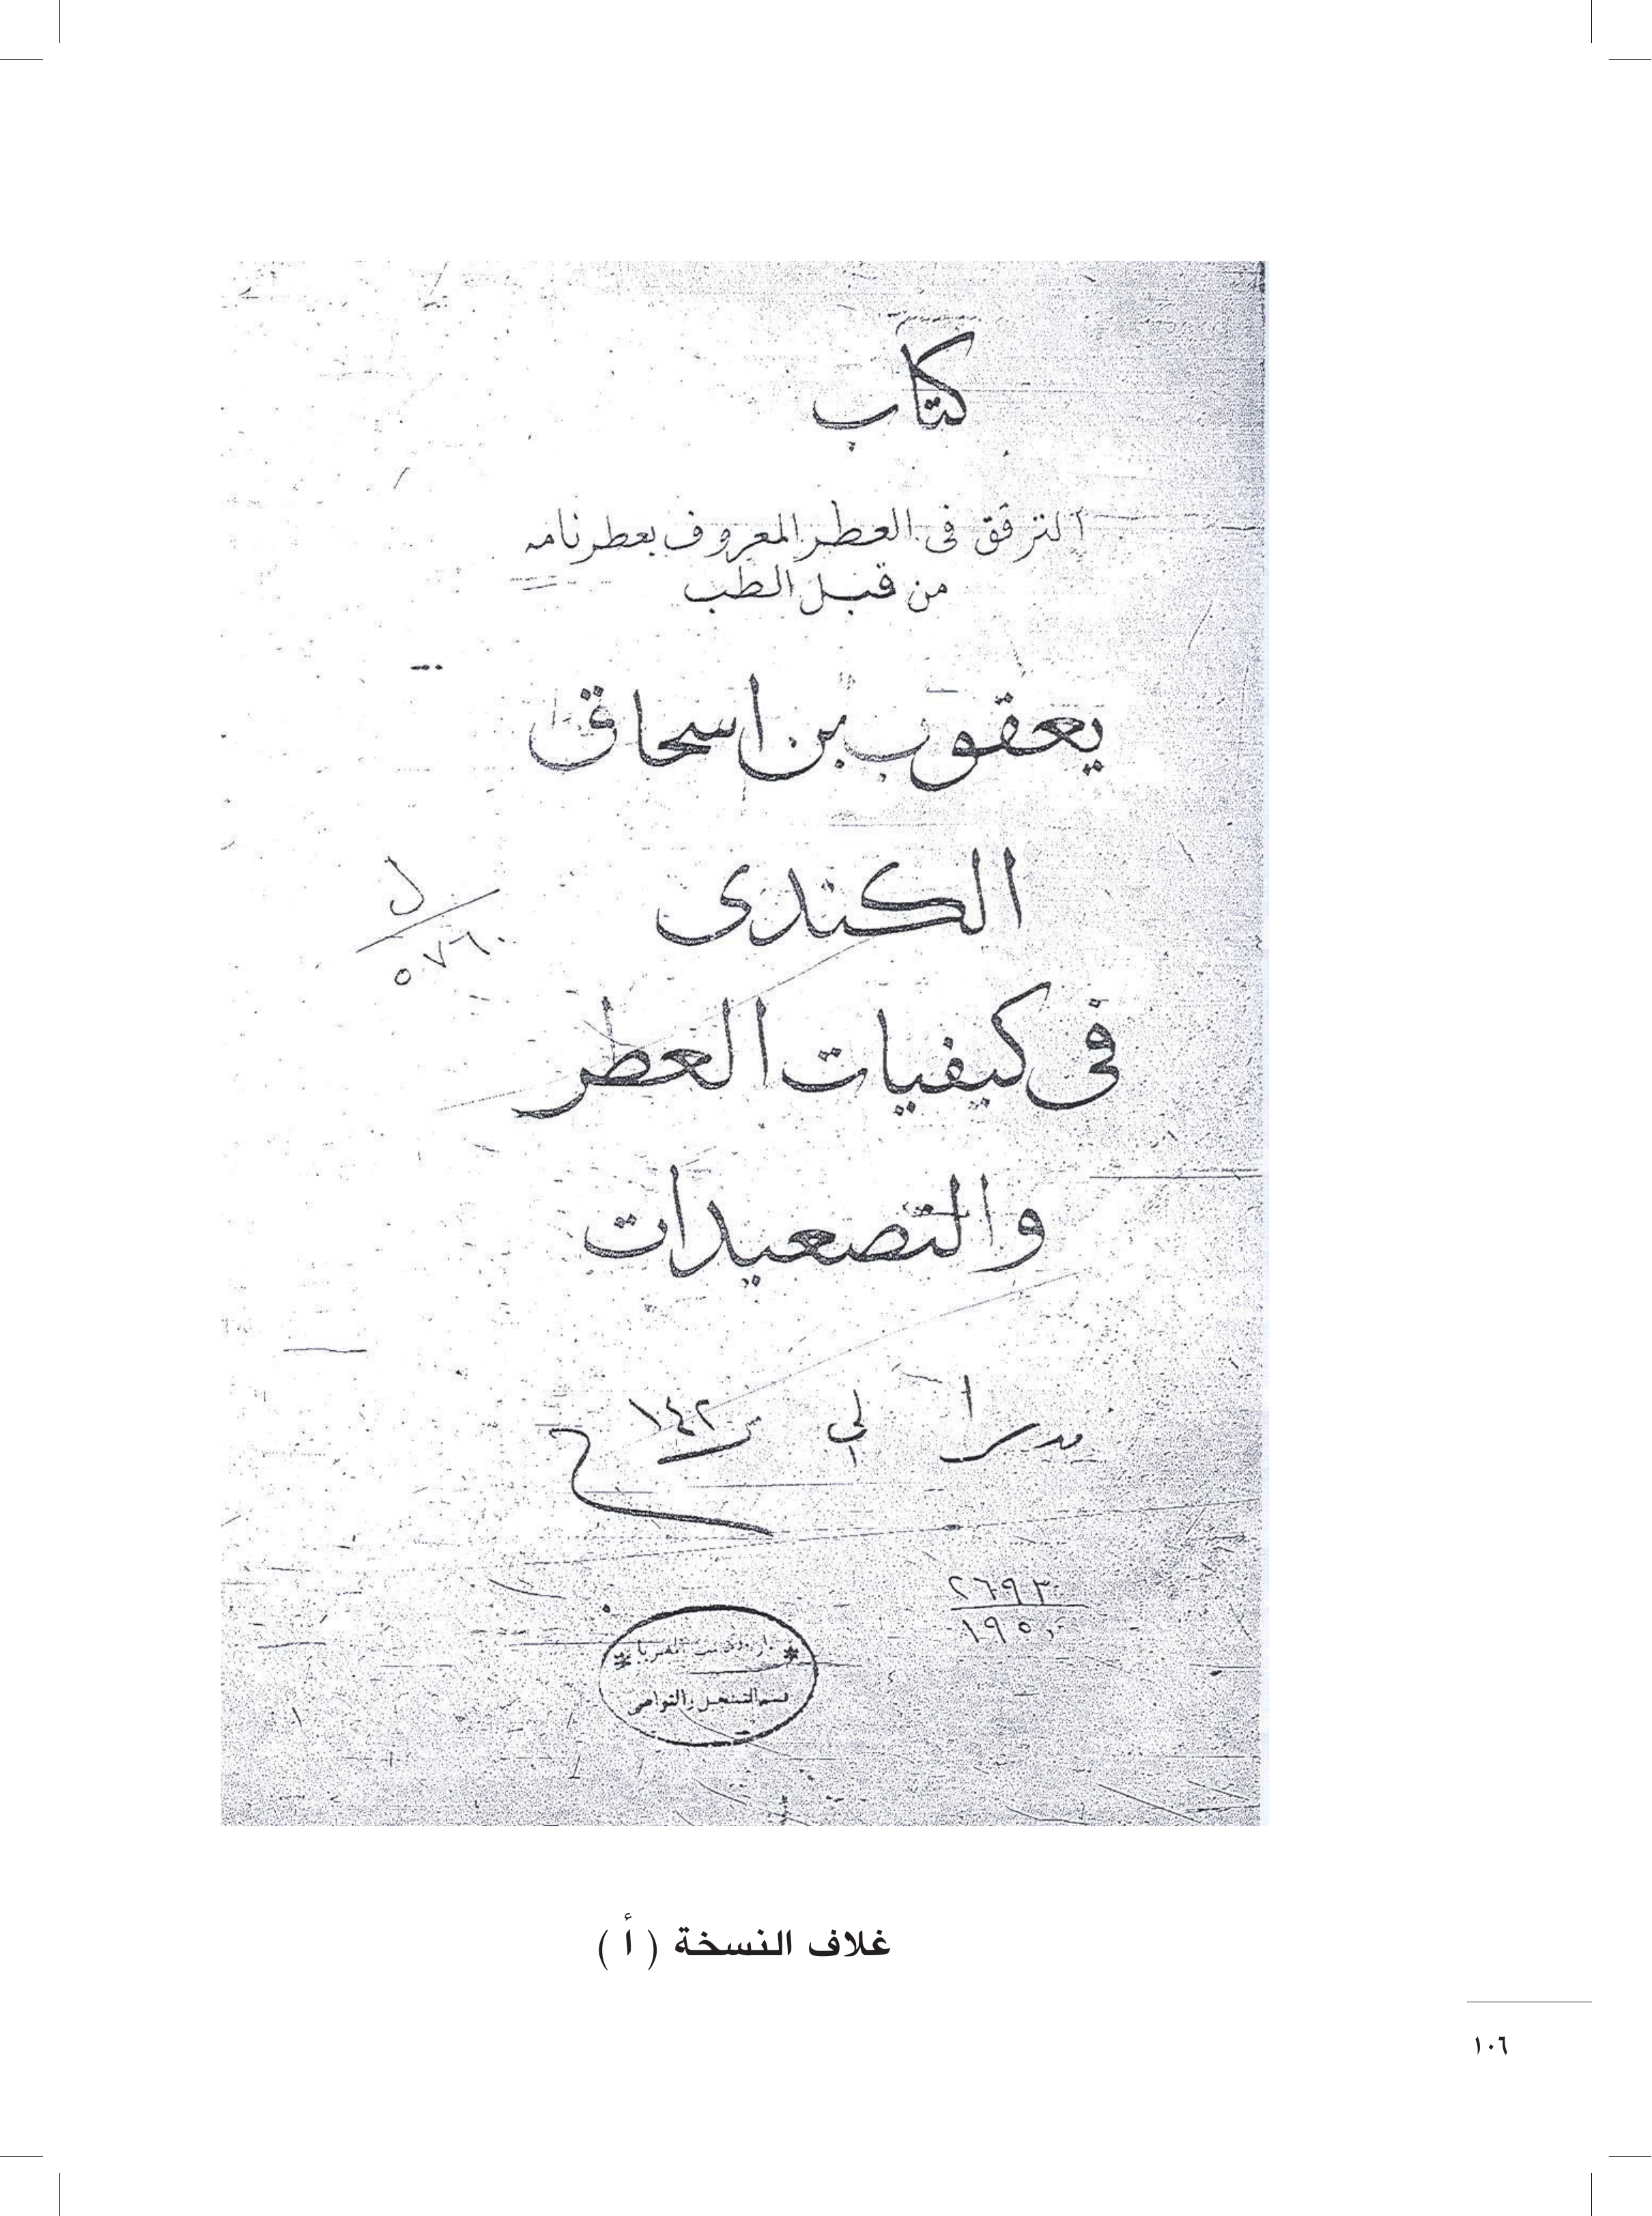 كتاب
الترفق فى العطر المعروف بعطرنامه
من قبل الطب
يعقوب بن اسحاق
الكندى
ل
٥٧٦٠
فى كيفيات العطر
والتصعيدات
١٤٢
٢٦٩٣
١٩٥٠
غلاف النسخة ( أ )
١٠٦